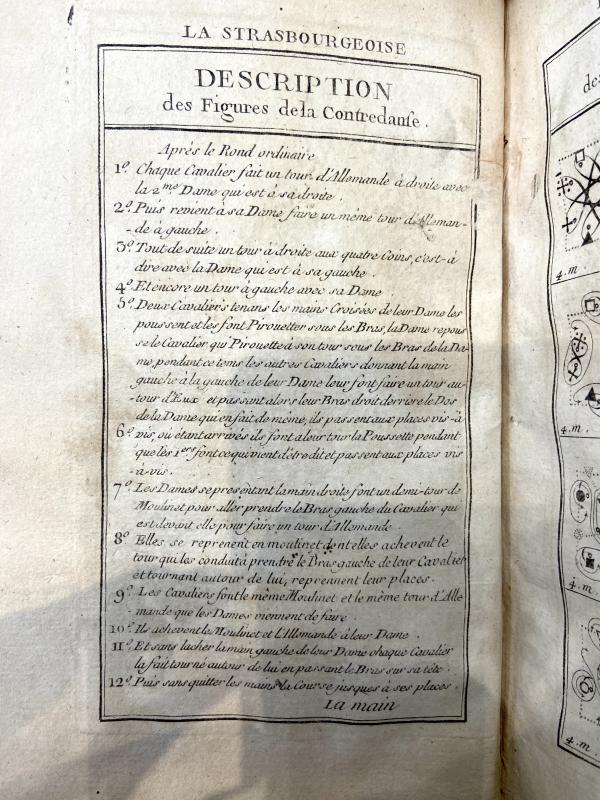 LA STRASBOURGEOISE
DESCRIPTION
des Figures de la Contredanse.
Après le Rond ordinaire
1º. Chaque Cavalier fait un tour d'Allemande à droite avec
la 2.me Dame qui est à sa droite.
2º. Puis revient à sa Dame faire un même tour d'Alleman-
de à gauche.
3º. Tout de suite un tour à droite aux quatre Coins, c'est-à
dire avec la Dame qui est à sa gauche.
4º. Et encore un tour à gauche avec sa Dame
5º. Deux Cavaliers tenans les mains Croisées de leur Dame les
poussent et les font Pirouetter sous les Bras, la Dame repous
se le Cavalier qui Pirouette à son tour sous les Bras de la Da-
me, pendant ce tems les autres Cavaliers donnant la main
gauche à la gauche de leur Dame leur font faire un tour au-
tour d'Eux et passant alors leur Bras droit derriere le Dos
de la Dame qui en fait de même, ils passent aux places vis-à
6º. vis, où étant arrivés ils font a leur tour la Poussette pendant
que les 1.ers font ce qui vient d'être dit et passent aux places vis
-à-vis.
7º. Les Dames se presentant la main droite font un demi-tour de
Moulinet pour aller prendre le Bras gauche du Cavalier qui
est devant elle pour faire un tour d'Allemande.
8º. Elles se reprenent en moulinet dont elles achevent le
tour qui les conduit à prendre le Bras gauche de leur Cavalier
et tournant autour de lui, reprennent leur places.
9º. Les Cavaliers font le même Moulinet et le même tour d'Alle
mande que les Dames viennent de faire.
10º. Ils achevent le Moulinet et l'Allemande à leur Dame.
11º. Et sans lacher la main gauche de leur Dame chaque Cavalier
la fait tourné autour de lui en passant le Bras sur sa tête.
12º. Puis sans quitter les mains la Course jusques à ses places.
La main
de
4.m
4.m.
4.m
4.m.